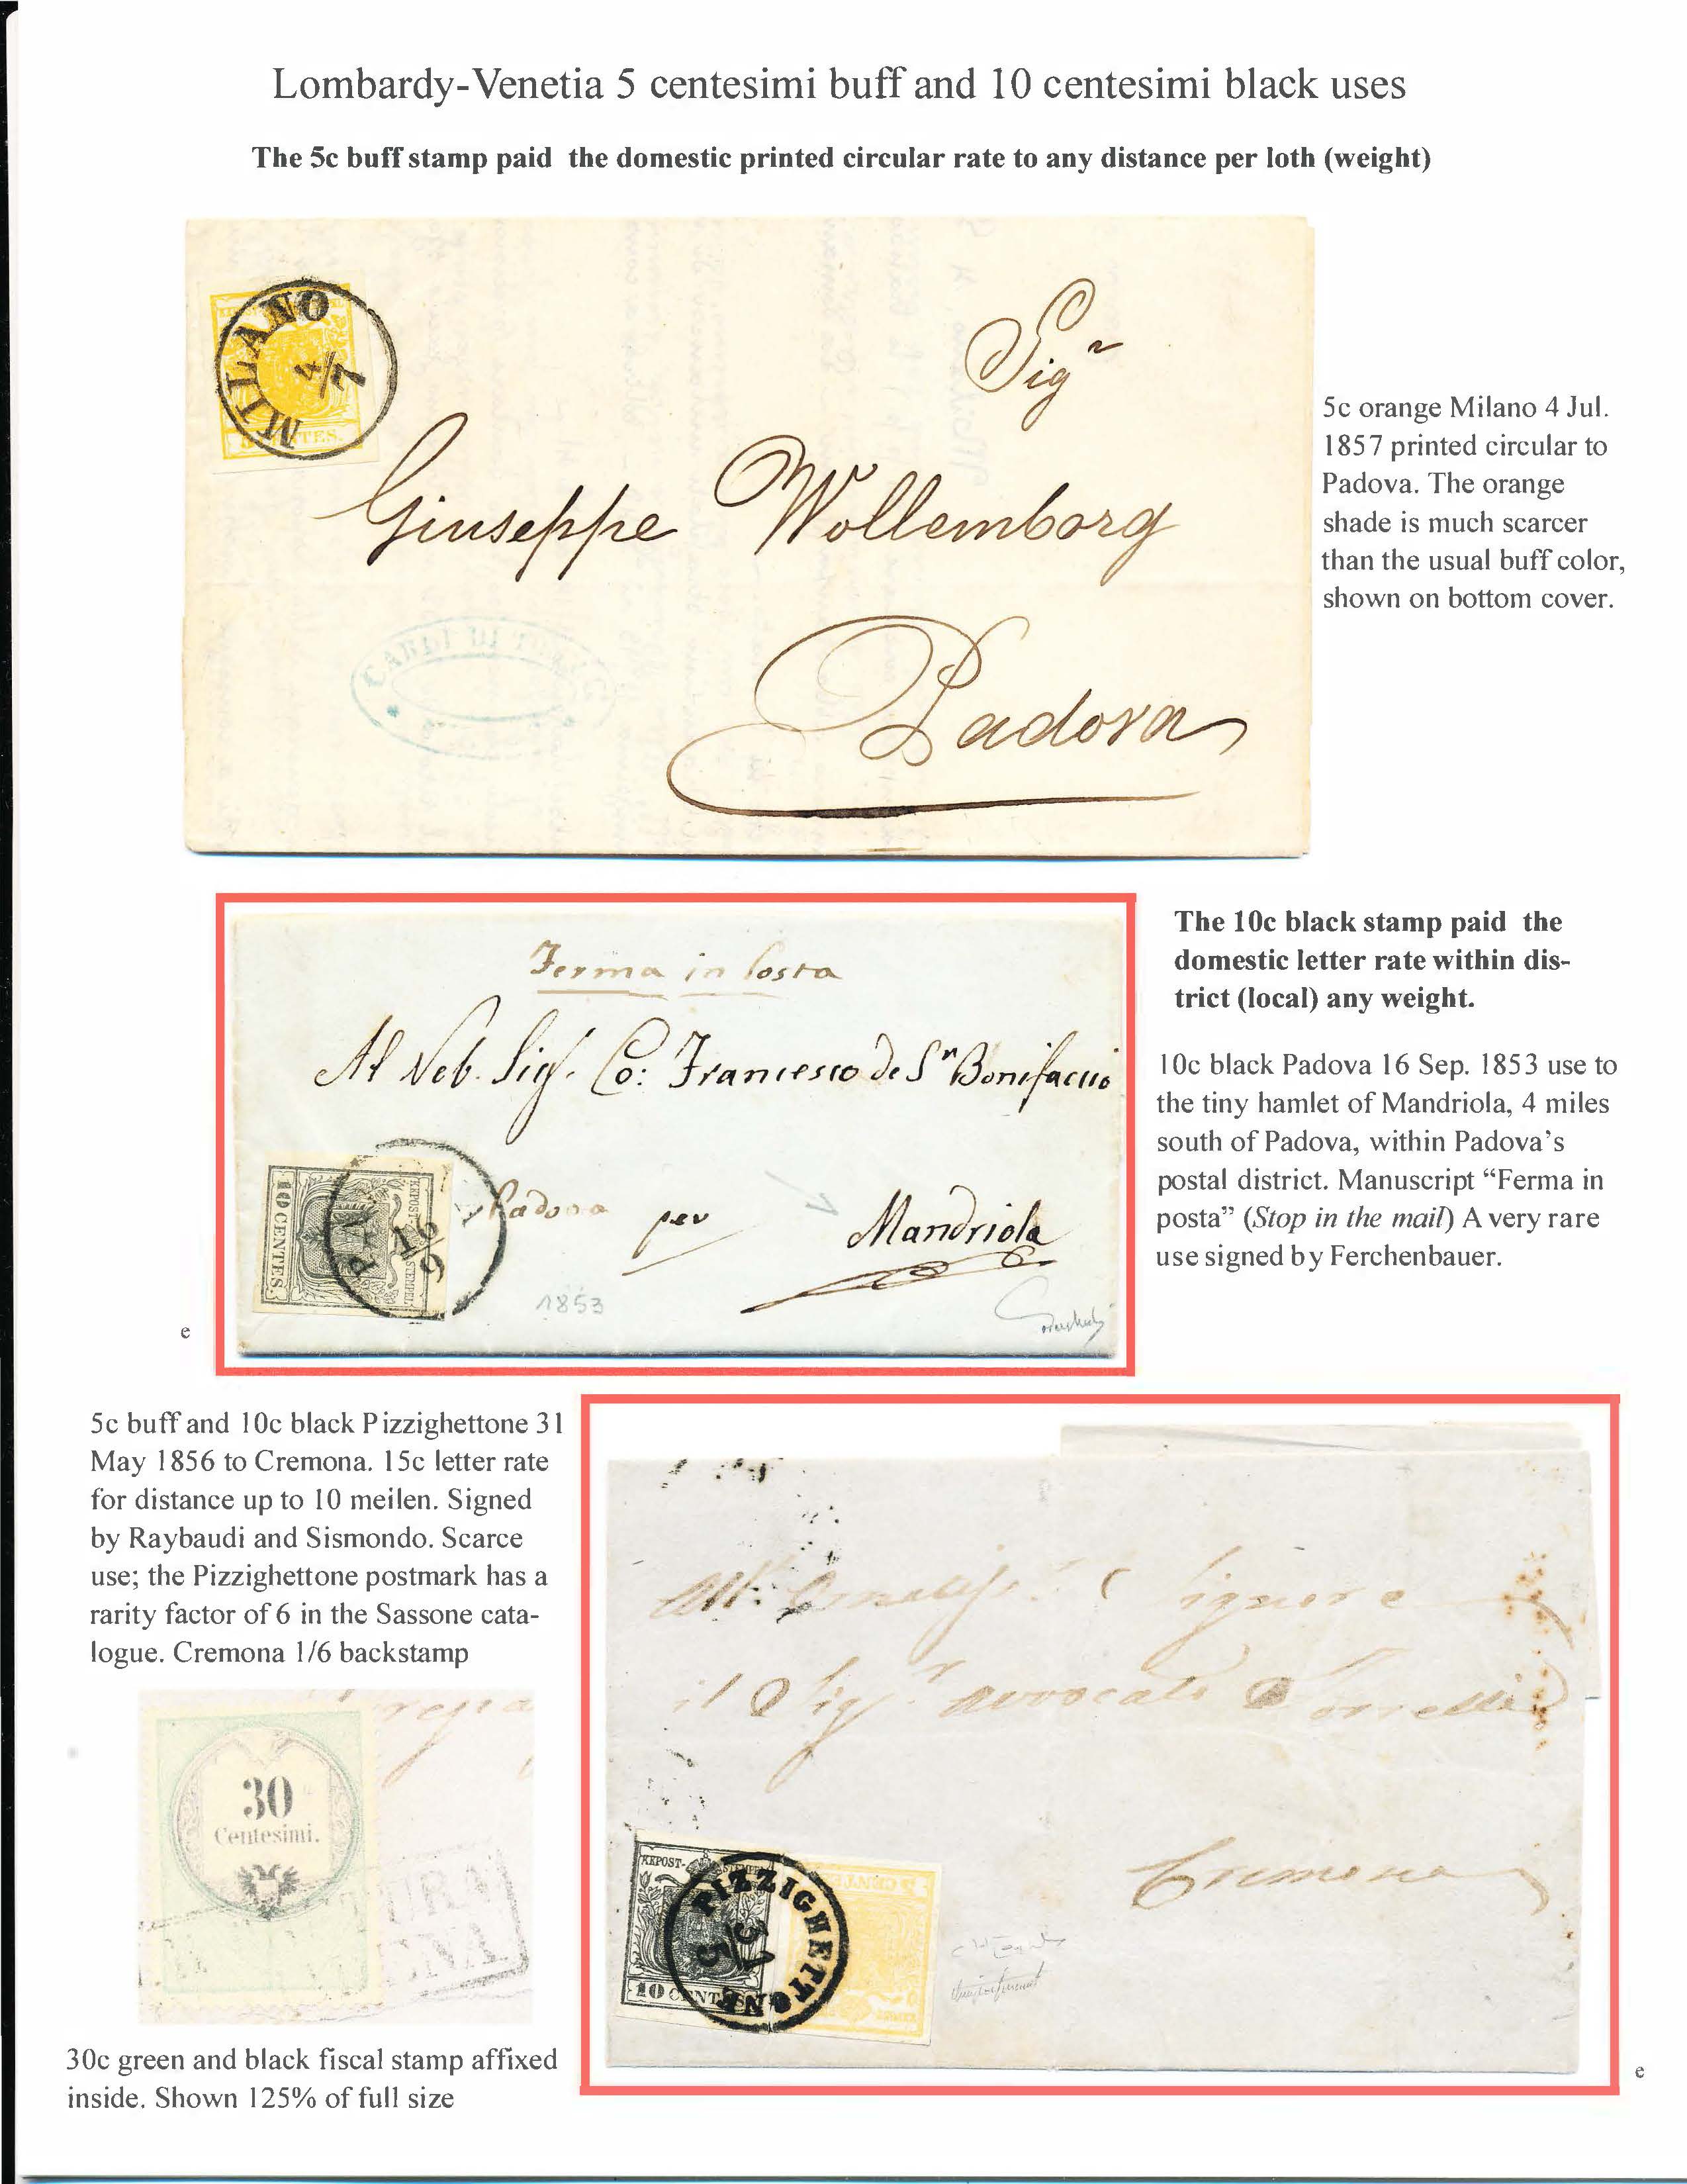 Lombardy-Venetia 5 centesimi buff and 10 centesimi black uses
The 5c buff stamp paid the domestic printed circular rate to any distance per loth (weight)
MILANO
4/7
CENTES.
Sigr
Giuseppe Wollemborg
Padova
CARLI DI
5c orange Milano 4 Jul.
1857 printed circular to
Padova. The orange
shade is much scarcer
than the usual buff color,
shown on bottom cover.
Ferma in Posta
Al Nob. Sigr. Co: Francesco de Sn Bonifaccio
Padova per Mandriola
KKPOST-STEMPEL
10 CENTES.
PA
16/9
1853
The 10c black stamp paid the
domestic letter rate within dis-
trict (local) any weight.
10c black Padova 16 Sep. 1853 use to
the tiny hamlet of Mandriola, 4 miles
south of Padova, within Padova's
postal district. Manuscript “Ferma in
posta” (Stop in the mail) A very rare
use signed by Ferchenbauer.
e
5c buff and 10c black Pizzighettone 31
May 1856 to Cremona. 15c letter rate
for distance up to 10 meilen. Signed
by Raybaudi and Sismondo. Scarce
use; the Pizzighettone postmark has a
rarity factor of 6 in the Sassone cata-
logue. Cremona 1/6 backstamp
30
Centesimi.
30c green and black fiscal stamp affixed
inside. Shown 125% of full size
ignore
il Sigr avvocato
Cremona
KKPOST-STEMPEL
10 CENTES
PIZZIGHETTONE
31/5
e